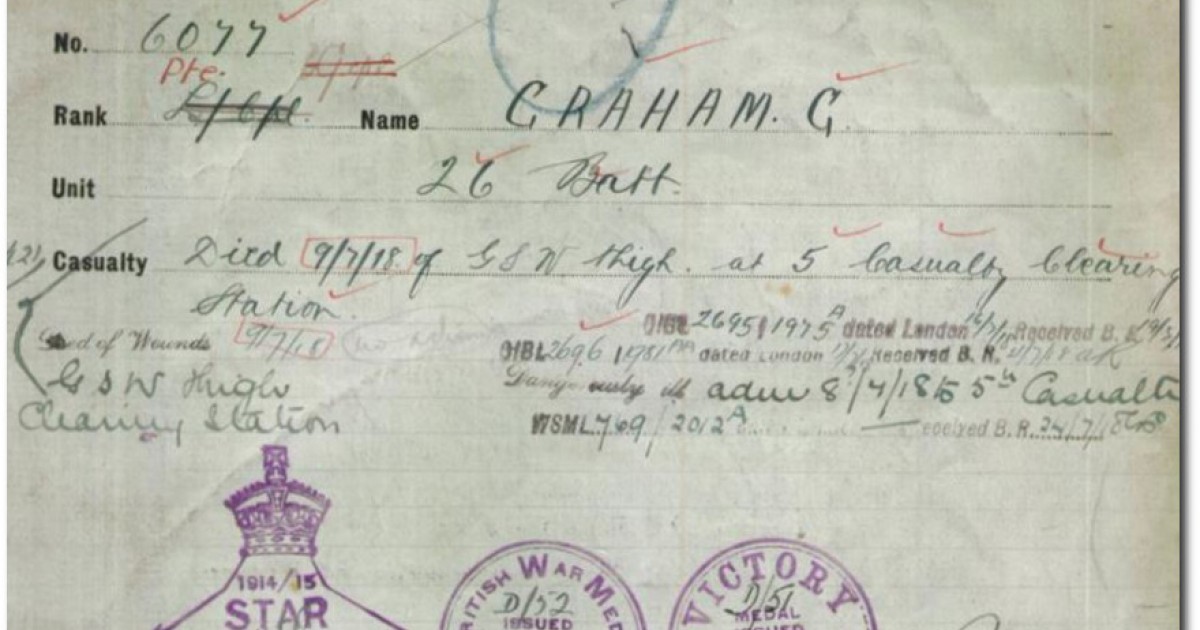 No. 6077
Pte.
Rank L/Cpl. Name GRAHAM. G
Unit 26 Batt.
Casualty Died 9/7/18 of G S W thigh. at 5 Casualty Clearing
Station.
of Wounds 9/7/18
G S W thigh
Clearing Station
OIBL 2695 1975 A dated London Received B. R.
OIBL 2696 1981 AA dated London Received B. R.
Dangerously ill adm 8/7/18 to 5th Casualty
WSML 769 2012 A eceived B. R. 24/7/18
1914/15
STAR
RITISH WAR MED
D/52
ISSUED
VICTORY
D/51
MEDAL
ISSUED